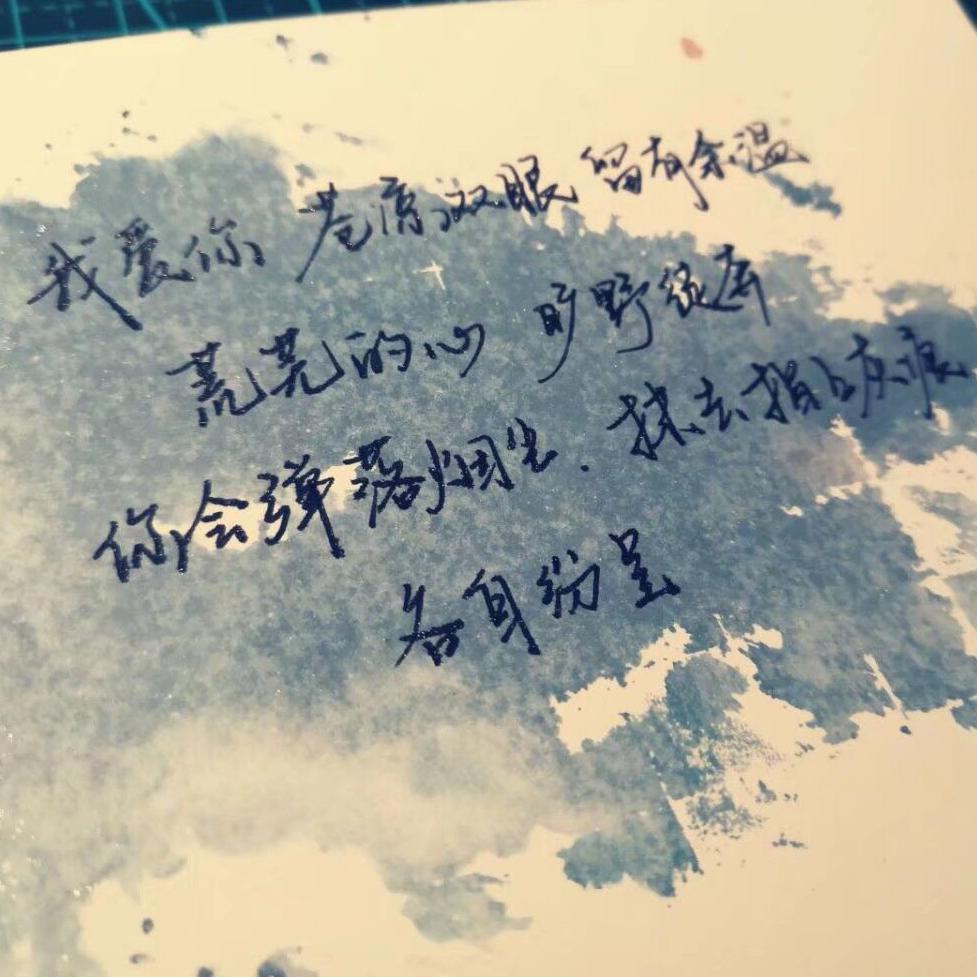 我爱你 苍凉双眼 留有余温
荒芜的心 旷野绽声
你会弹落烟尘. 抹去指上灰痕
各自纷呈